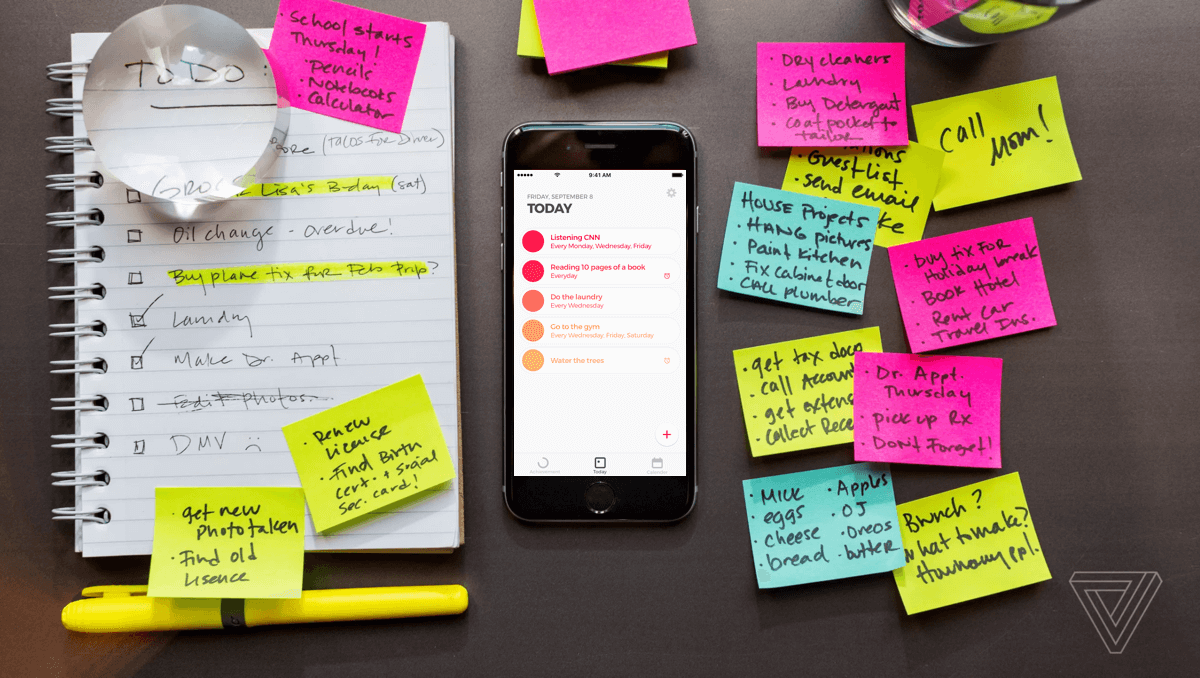 To Do:
(Tacos for Dinner)
Lisa's B-day (sat)
Oil change - overdue!
Buy plane tix for Feb trip?
Laundry
Make Dr. Appt
Edit photos
DMV
School starts
Thursday!
• Pencils
• Notebooks
• Calculator
• Renew
License
• Find Birth
cert. + Social
Sec. card!
• get new
photo taken
• Find old
lisence
9:41 AM
FRIDAY, SEPTEMBER 8
TODAY
Listening CNN
Every Monday, Wednesday, Friday
Reading 10 pages of a book
Everyday
Do the laundry
Every Wednesday
Go to the gym
Every Wednesday, Friday, Saturday
Water the trees
+
Achievement
Today
Calendar
• Dry cleaners
• Laundry
• Buy Detergent
• Coat pocket to
tailor
Call
Mom!
Guest list
• send email
House Projects
• Hang pictures
• Paint Kitchen
• Fix cabinet door
• Call plumber
• Buy tix for
Holiday break
• Book Hotel
• Rent Car
• Travel Ins.
• get tax docs
• call
• get
• Collect
• Dr. Appt.
Thursday
• pick up Rx
• Don't Forget!
• Milk
• eggs
• cheese
• bread
• Apples
• OJ
• Oreos
• butter
Brunch?
what to make?
ppl.